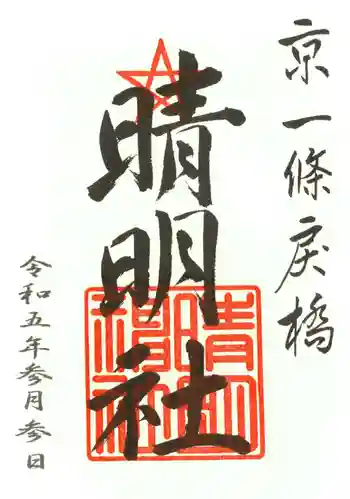 京一條戾橋
晴明社
令和五年参月参日
晴明神社